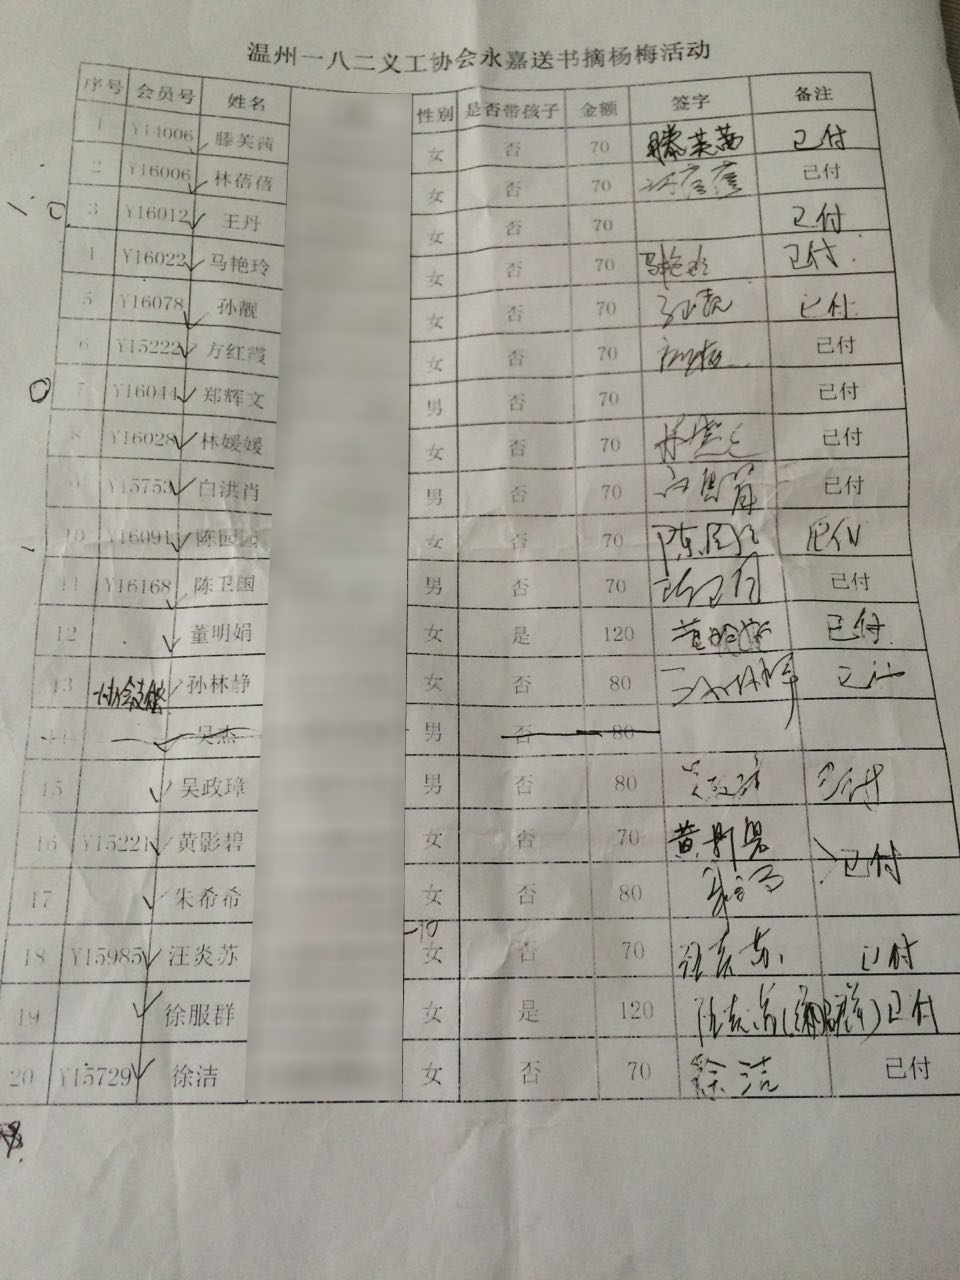 温州一八二义工协会永嘉送书摘杨梅活动
序号 会员号 姓名 性别 是否带孩子 金额 签字 备注
1 Y14006 滕芙茜 女 否 70 滕芙茜 已付
2 Y16006 林蓓蓓 女 否 70 已付
3 Y16012 王丹 女 否 70 已付
4 Y16022 马艳玲 女 否 70 马艳玲 已付
5 Y16078 孙靓 女 否 70 孙靓 已付
6 Y15222 方红霞 女 否 70 已付
7 Y16044 郑辉文 男 否 70 已付
8 Y16028 林媛媛 女 否 70 已付
9 Y15753 白洪肖 男 否 70 已付
10 Y16091 陈园园 女 否 70 陈园园 已付
11 Y16168 陈卫国 男 否 70 陈卫国 已付
12 董明娟 女 是 120 董明娟 已付
13 孙林静 女 否 80 孙林静 已付
14 吴杰 男 否 80
15 吴政璋 男 否 80 吴政璋 已付
16 Y15221 黄影碧 女 否 70 黄影碧 已付
17 朱希希 女 否 80
-10
18 Y15985 汪炎苏 女 否 70 汪炎苏 已付
19 徐服群 女 是 120 汪炎苏(徐服群) 已付
20 Y15729 徐洁 女 否 70 徐洁 已付